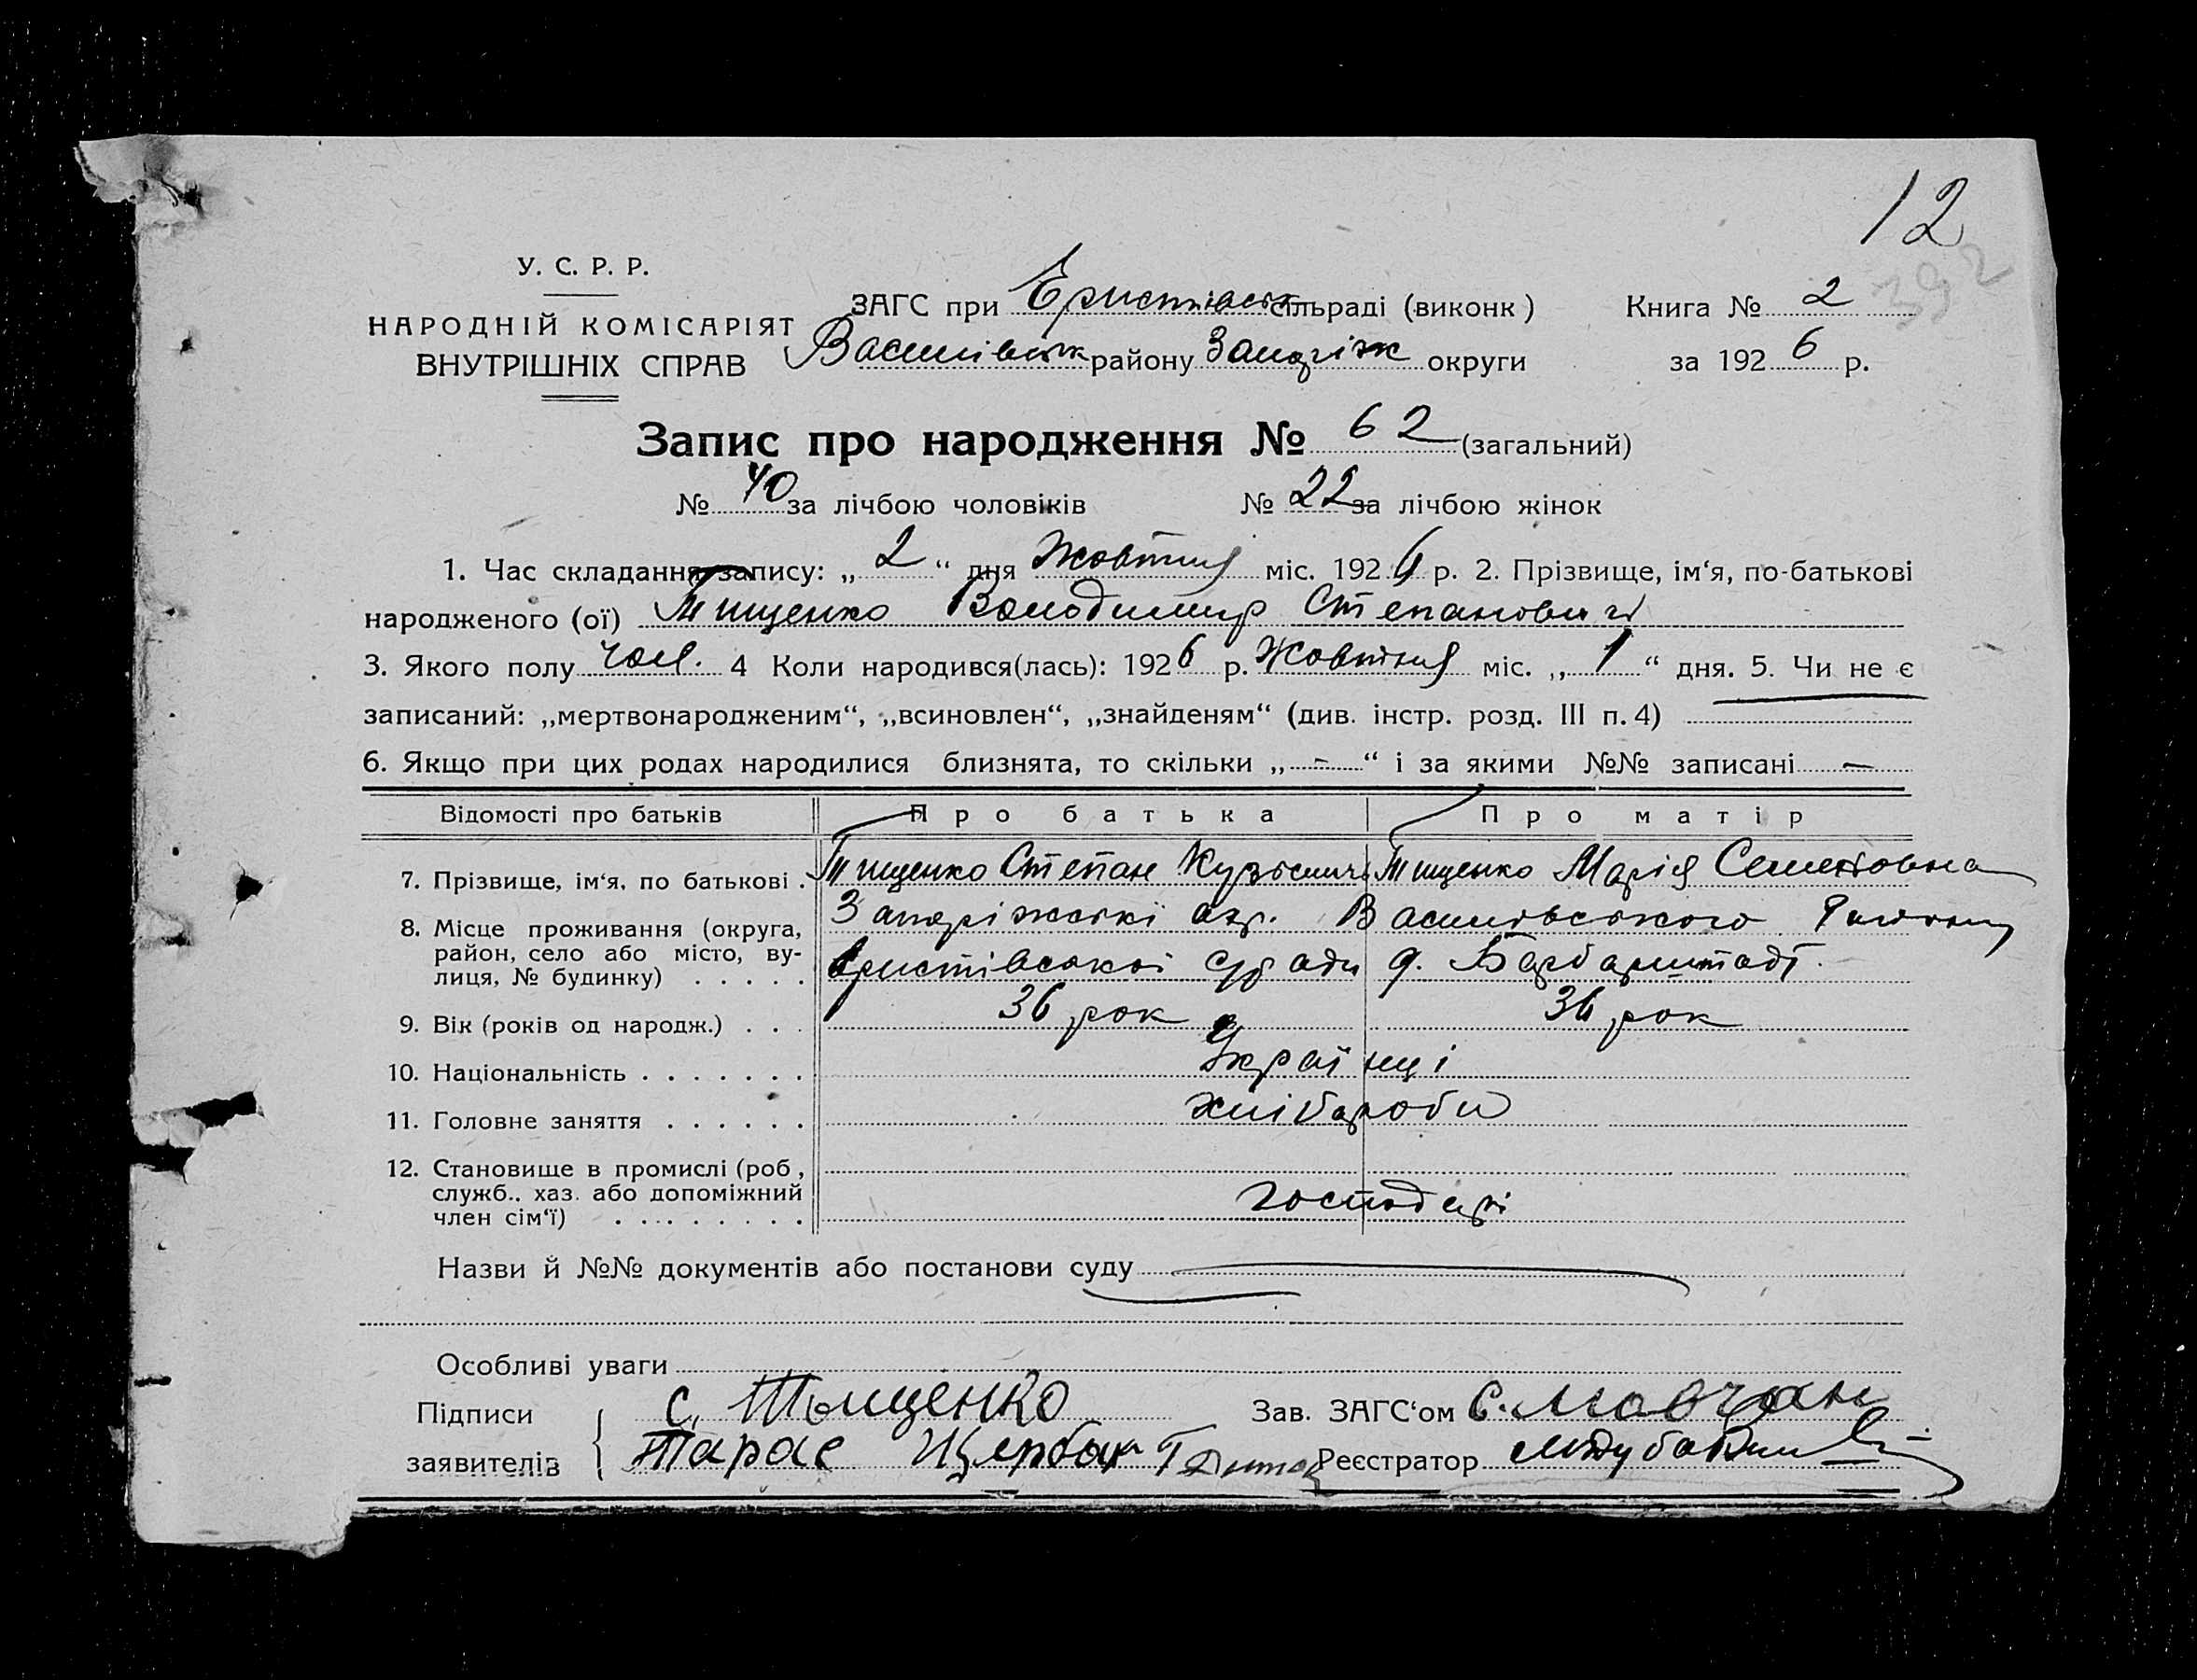 12
392
У. С. Р. Р.
НАРОДНІЙ КОМІСАРІЯТ
ВНУТРІШНІХ СПРАВ
ЗАГС при Еристівськ сільраді (виконк)
Васиlівськ району Запоріж округи
Книга № 2
за 1926 р.
Запис про народження № 62 (загальний)
№ 40 за лічбою чоловіків № 22 за лічбою жінок
1. Час складання запису: „2“ дня Жовтня міс. 1926 р. 2. Прізвище, ім‘я, по-батькові
народженого (ої) Тищенко Володимир Степанович
3. Якого полу чол. 4 Коли народився(лась): 1926 р. Жовтня міс. „1“ дня. 5. Чи не є
записаний: „мертвонародженим“, „всиновлен“, „знайденям“ (див. інстр. розд. III п. 4)
6. Якщо при цих родах народилися близнята, то скільки „-“ і за якими №№ записані —
Відомості про батьків Про батька Про матір
7. Прізвище, ім‘я, по батькові . Тищенко Степан Кузьмич Тищенко Марія Семеновна
8. Місце проживання (округа, Запоріжської окр. Василівського Району
район, село або місто, ву- Еристівської с/ради д. Барбарштадт.
лиця, № будинку) . . . . .
9. Вік (років од народж.) . . . 36 рок 36 рок
10. Національність . . . . . . . Українці
11. Головне заняття . . . . . . хлібороби
12. Становище в промислі (роб,
служб., хаз. або допоміжний господарі
член сім‘ї) . . . . . . . . .
Назви й №№ документів або постанови суду
Особливі уваги
Підписи С. Тыщенко Зав. ЗАГС‘ом С. Мовчан
заявителів Тарас Щербак Реєстратор